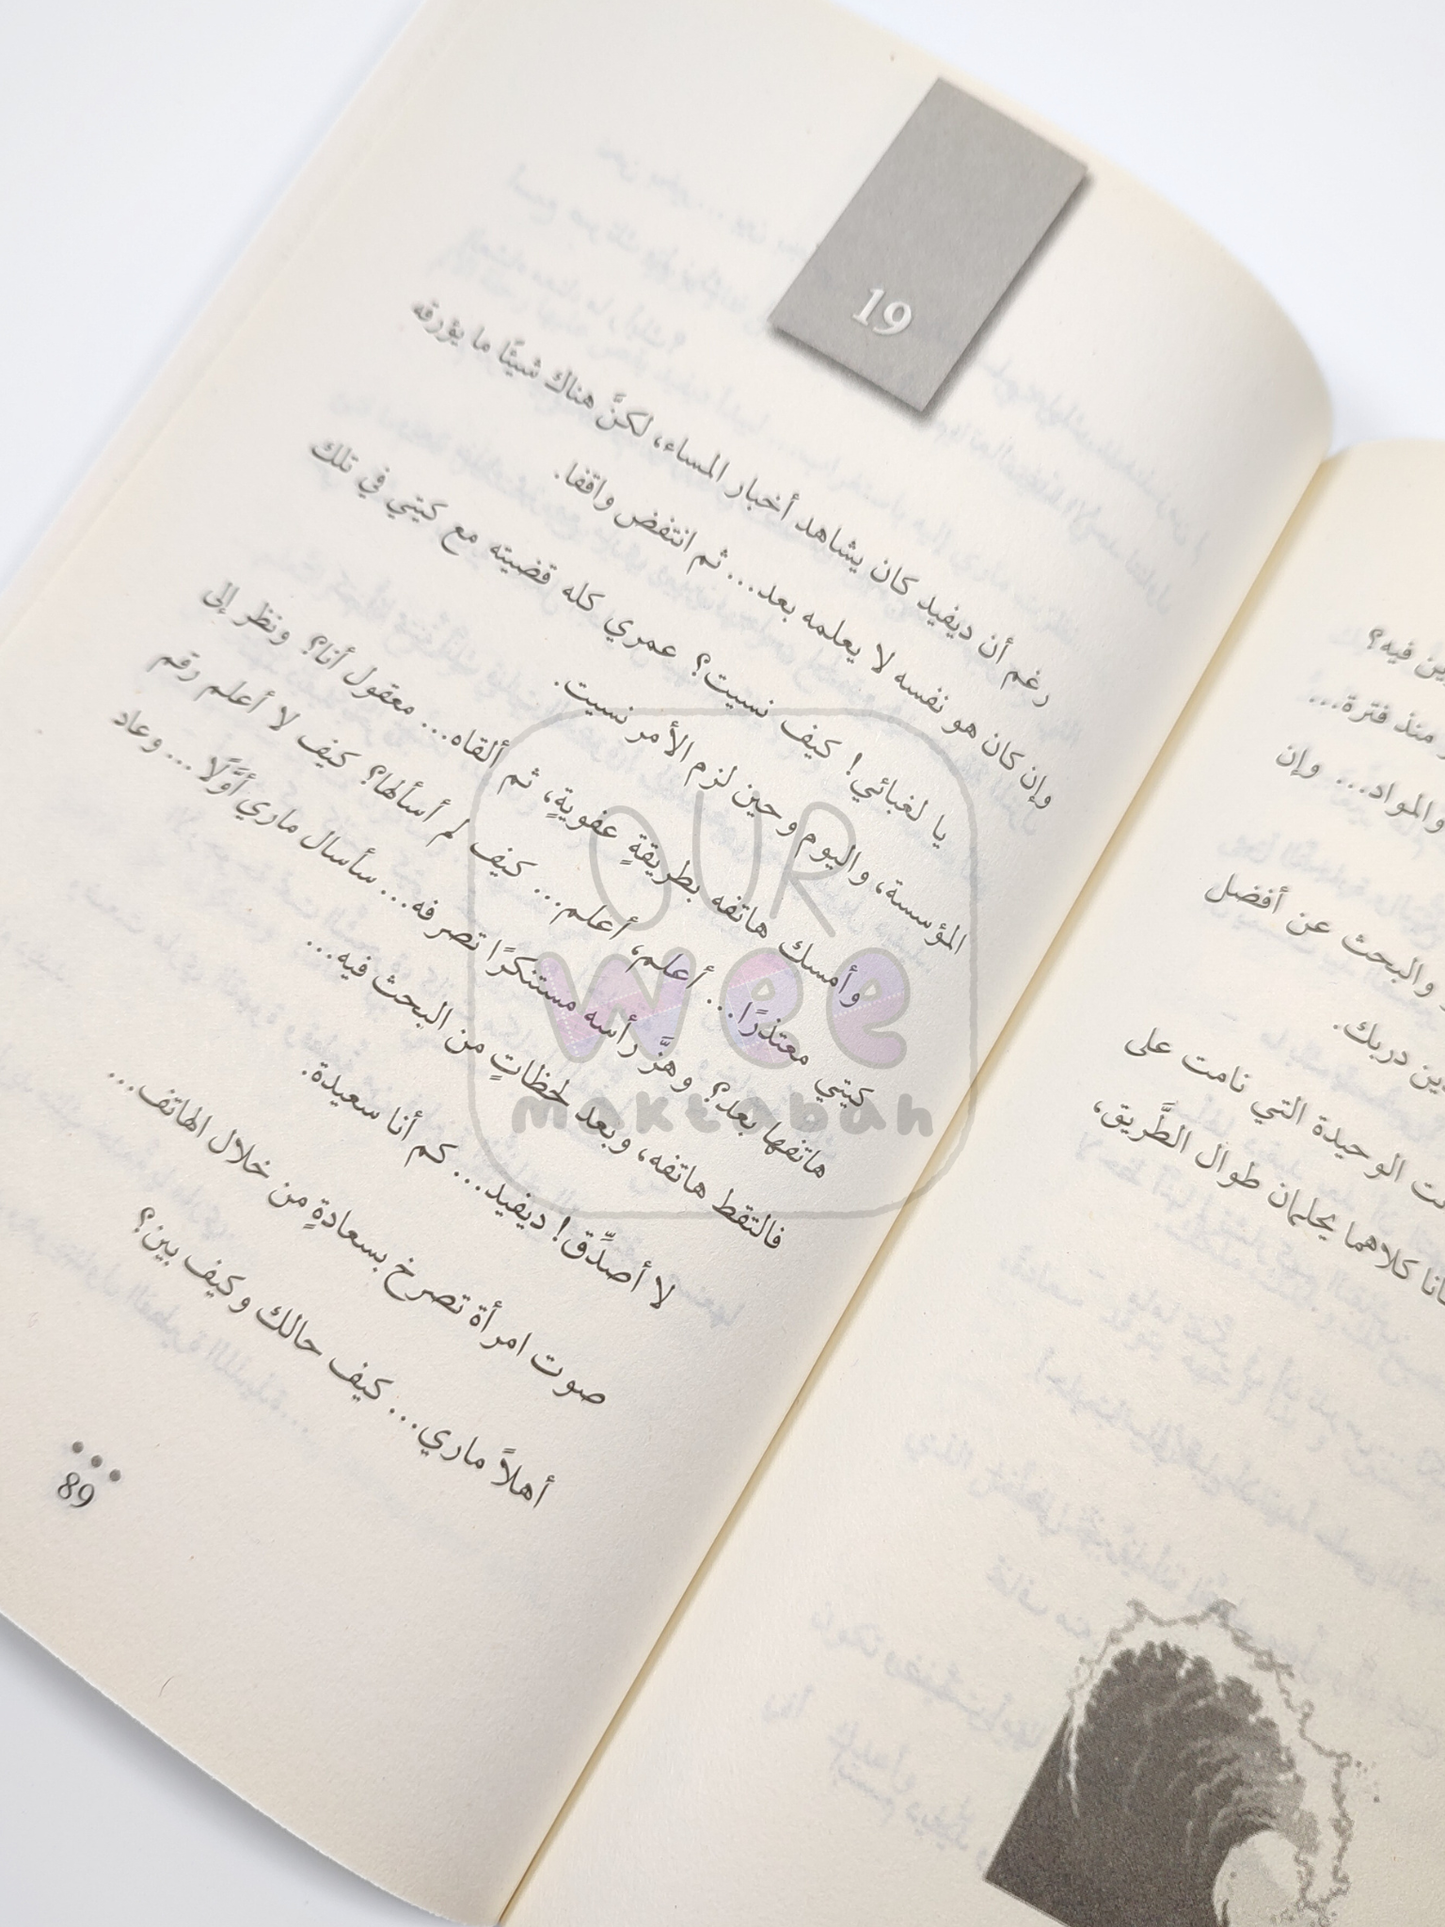 19
رغم أن ديفيد كان يشاهد أخبار المساء، لكنَّ هناك شيئًا ما يؤرقه
وإن كان هو نفسه لا يعلمه بعد... ثم انتفض واقفا.
يا لغبائي! كيف نسيت؟ عمري كله قضيته مع كيتي في تلك
المؤسسة، واليوم وحين لزم الأمر نسيت.
وأمسك هاتفه بطريقةٍ عفويةٍ، ثم ألقاه... معقول أنا؟ ونظر إلى
كيتي معتذرًا... أعلم، أعلم.. كيف لم أسألها؟ كيف لا أعلم رقم
هاتفها بعد؟ وهزَّ رأسه مستنكرًا تصرفه... سأسال ماري أوَّلًا... وعاد
فالتقط هاتفه، وبعد لحظاتٍ من البحث فيه...
لا أصدِّق! ديفيد... كم أنا سعيدة.
صوت امرأة تصرخ بسعادةٍ من خلال الهاتف...
أهلاً ماري... كيف حالك وكيف بين؟
89
فيه؟
منذ فترة...
والمواد... وإن
والبحث عن أفضل
دريك.
الوحيدة التي نامت على
كلاهما يحلمان طوال الطَّريق،
OUR
wee
maktabah